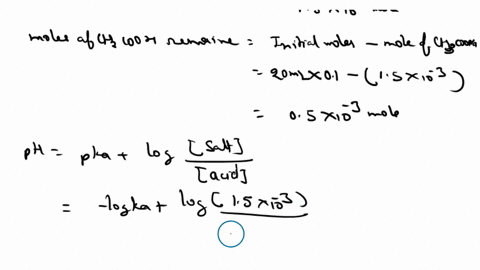 1.5×10⁻³
moles of CH3COOH remaine = Initial moles – mole of CH3COONa
= 20mL×0.1 – (1.5×10⁻³)
= 0.5×10⁻³ mole
pH = pka + log [Salt]
[acid]
= -logka + log (1.5×10⁻³)